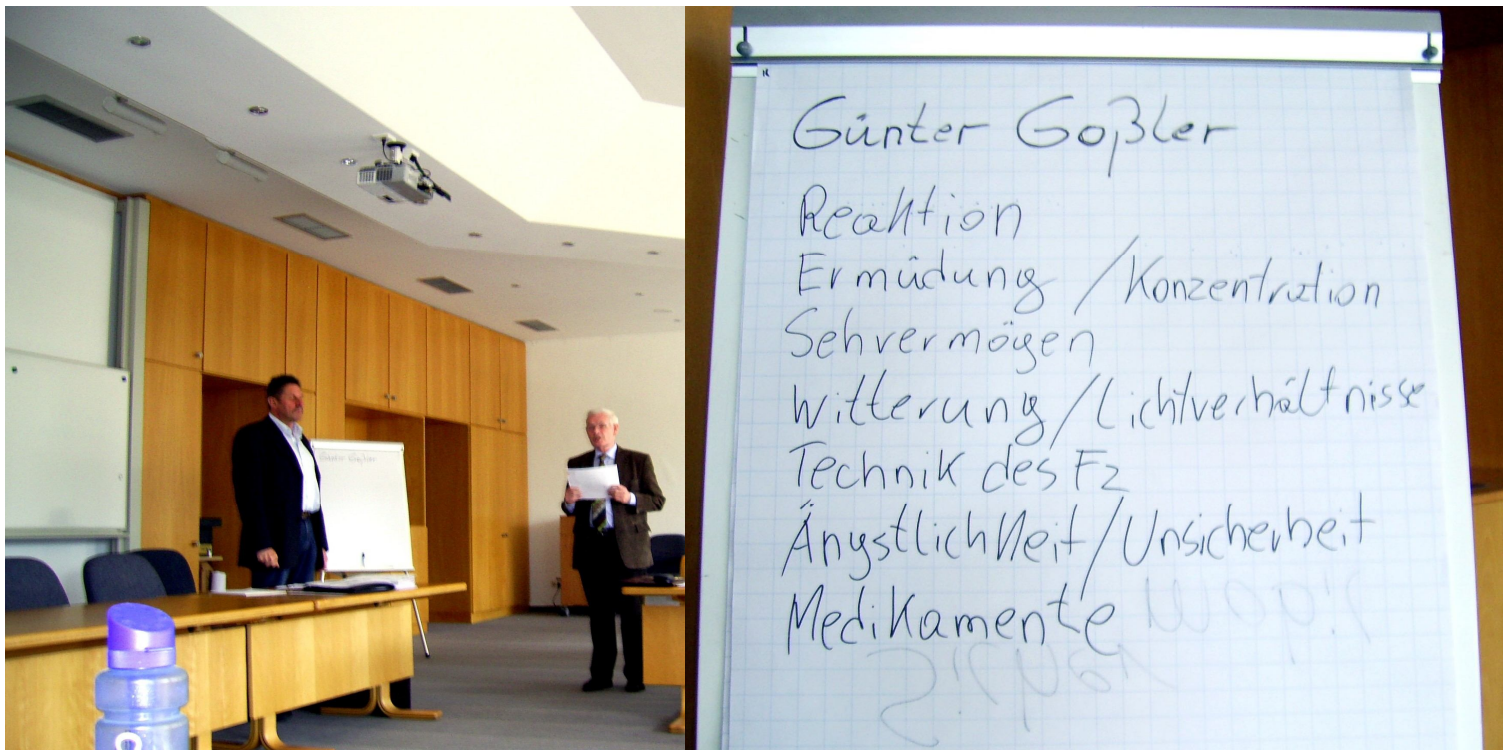 Günter Goßler
Günter Goßler
Reaktion
Ermüdung / Konzentration
Sehvermögen
Witterung / Lichtverhältnisse
Technik des Fz
Ängstlichkeit / Unsicherheit
Medikamente